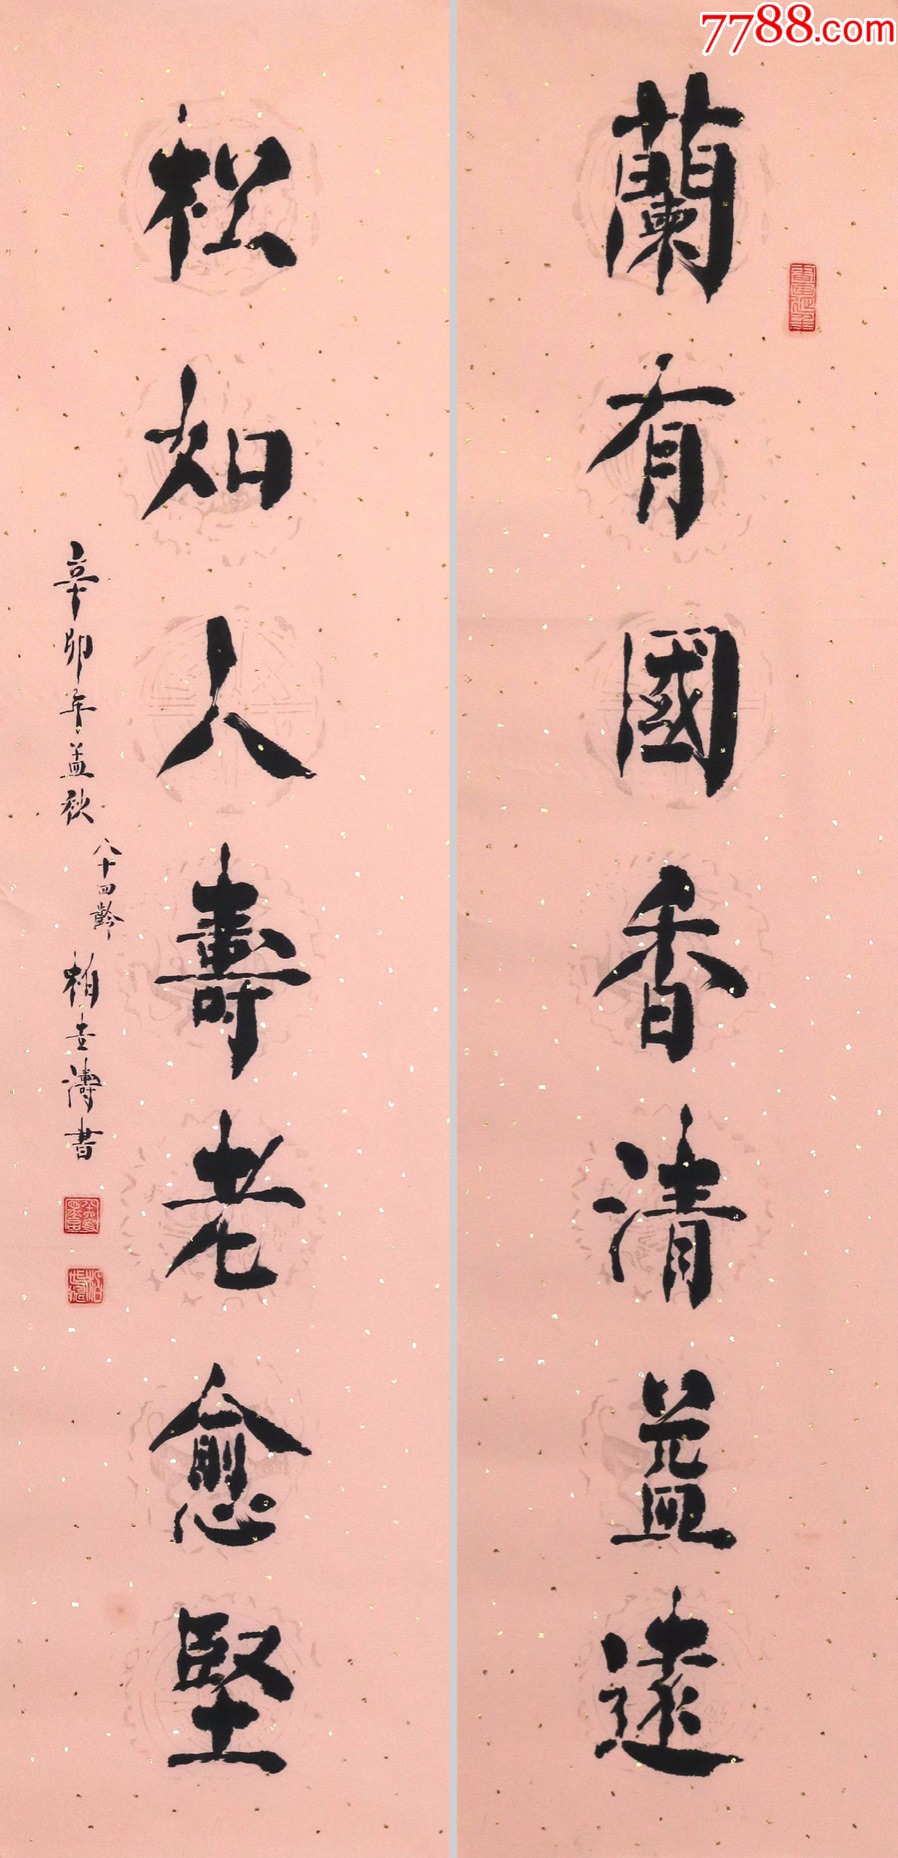 7788.com
蘭有國香清益遠
松如人壽老愈堅
辛卯年孟秋
八十四齡
柏士濤書